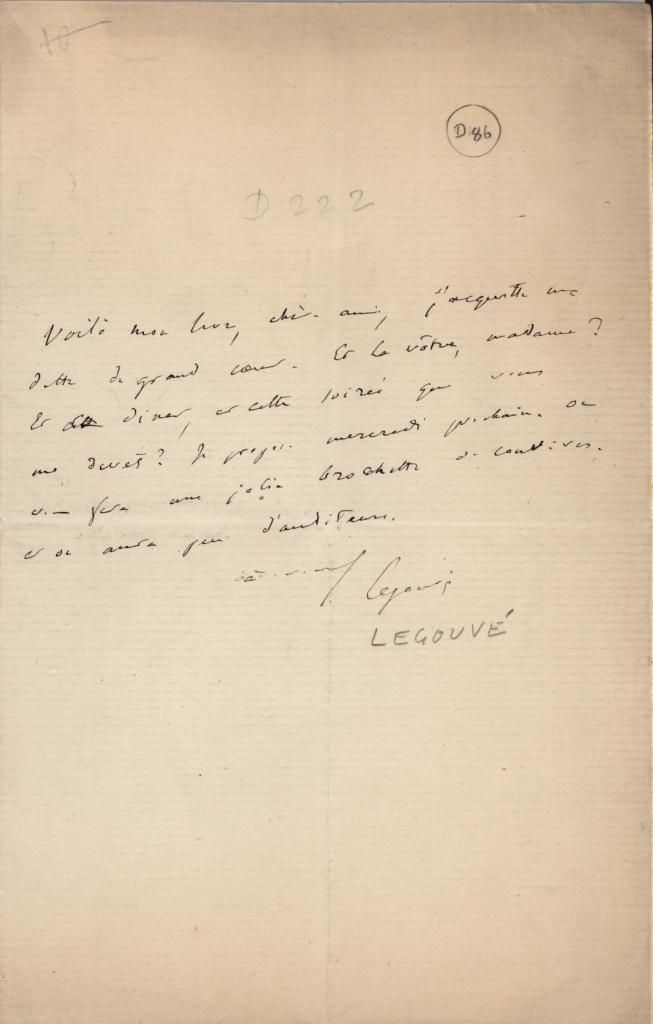 D 86
D 222
Voilà mon livre, chère amie, j'acquitte ma
dette de grand cœur. Et la vôtre, madame ?
Et dîner, et cette soirée que vous
me devez ? Je propose mercredi prochain. on
vous fera une jolie brochette de convives.
et on aura peu d'auditeurs.
à vous
E. Legouvé
LEGOUVÉ